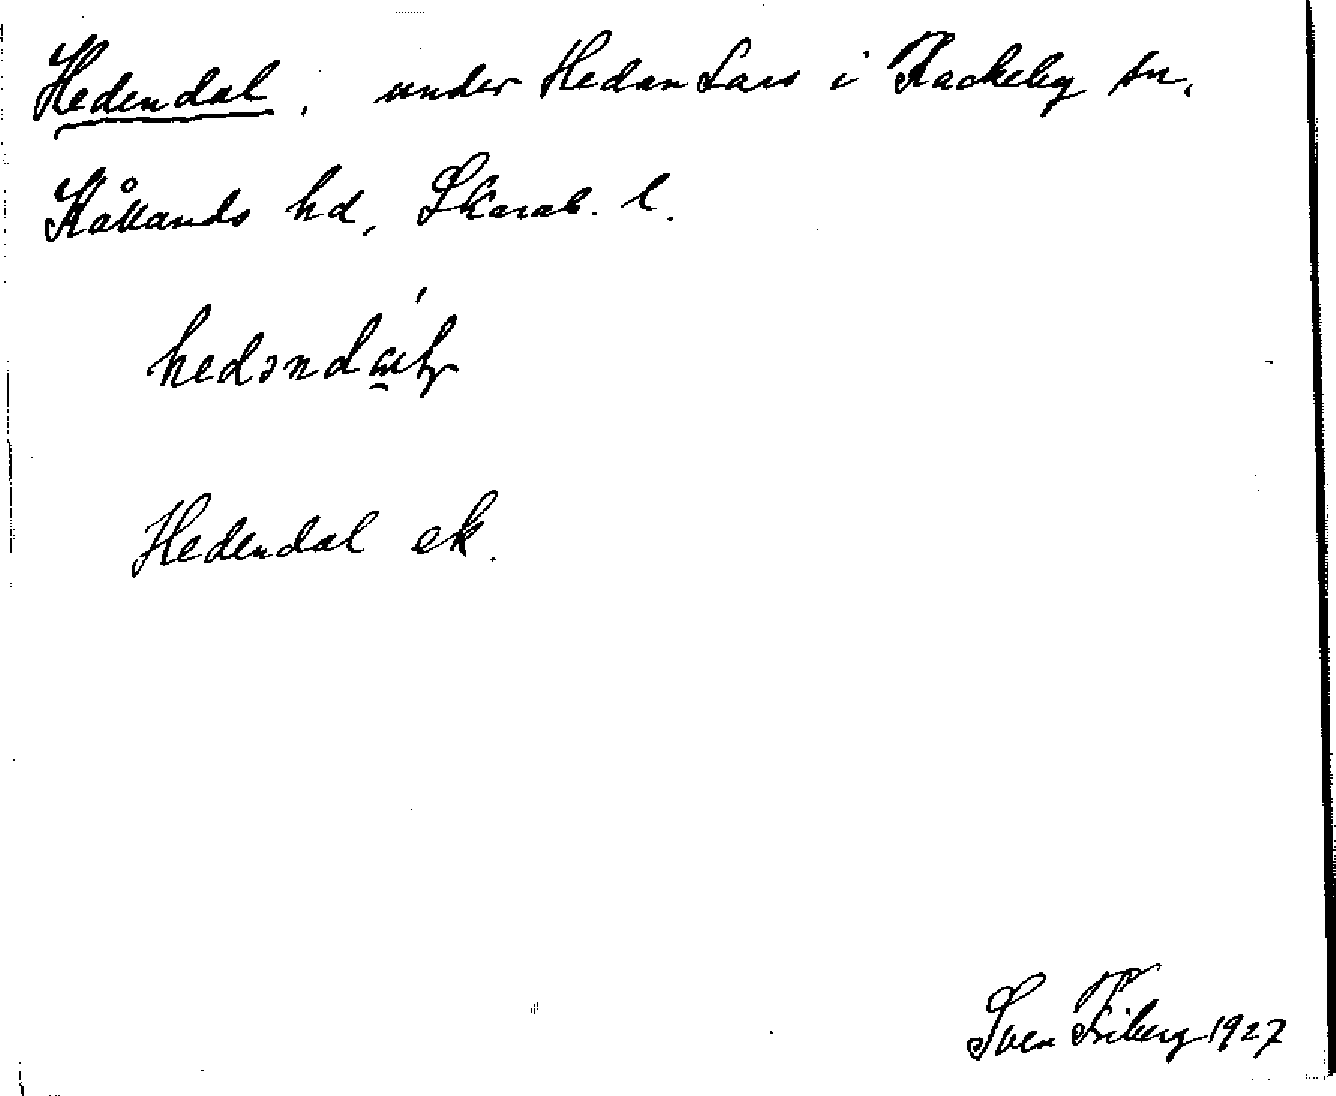 Hedendal, under Hedan Lars i Rackeby sn,
Kållands hd, Skarab. l.
Hedendal ek.
Sven Friberg 1927